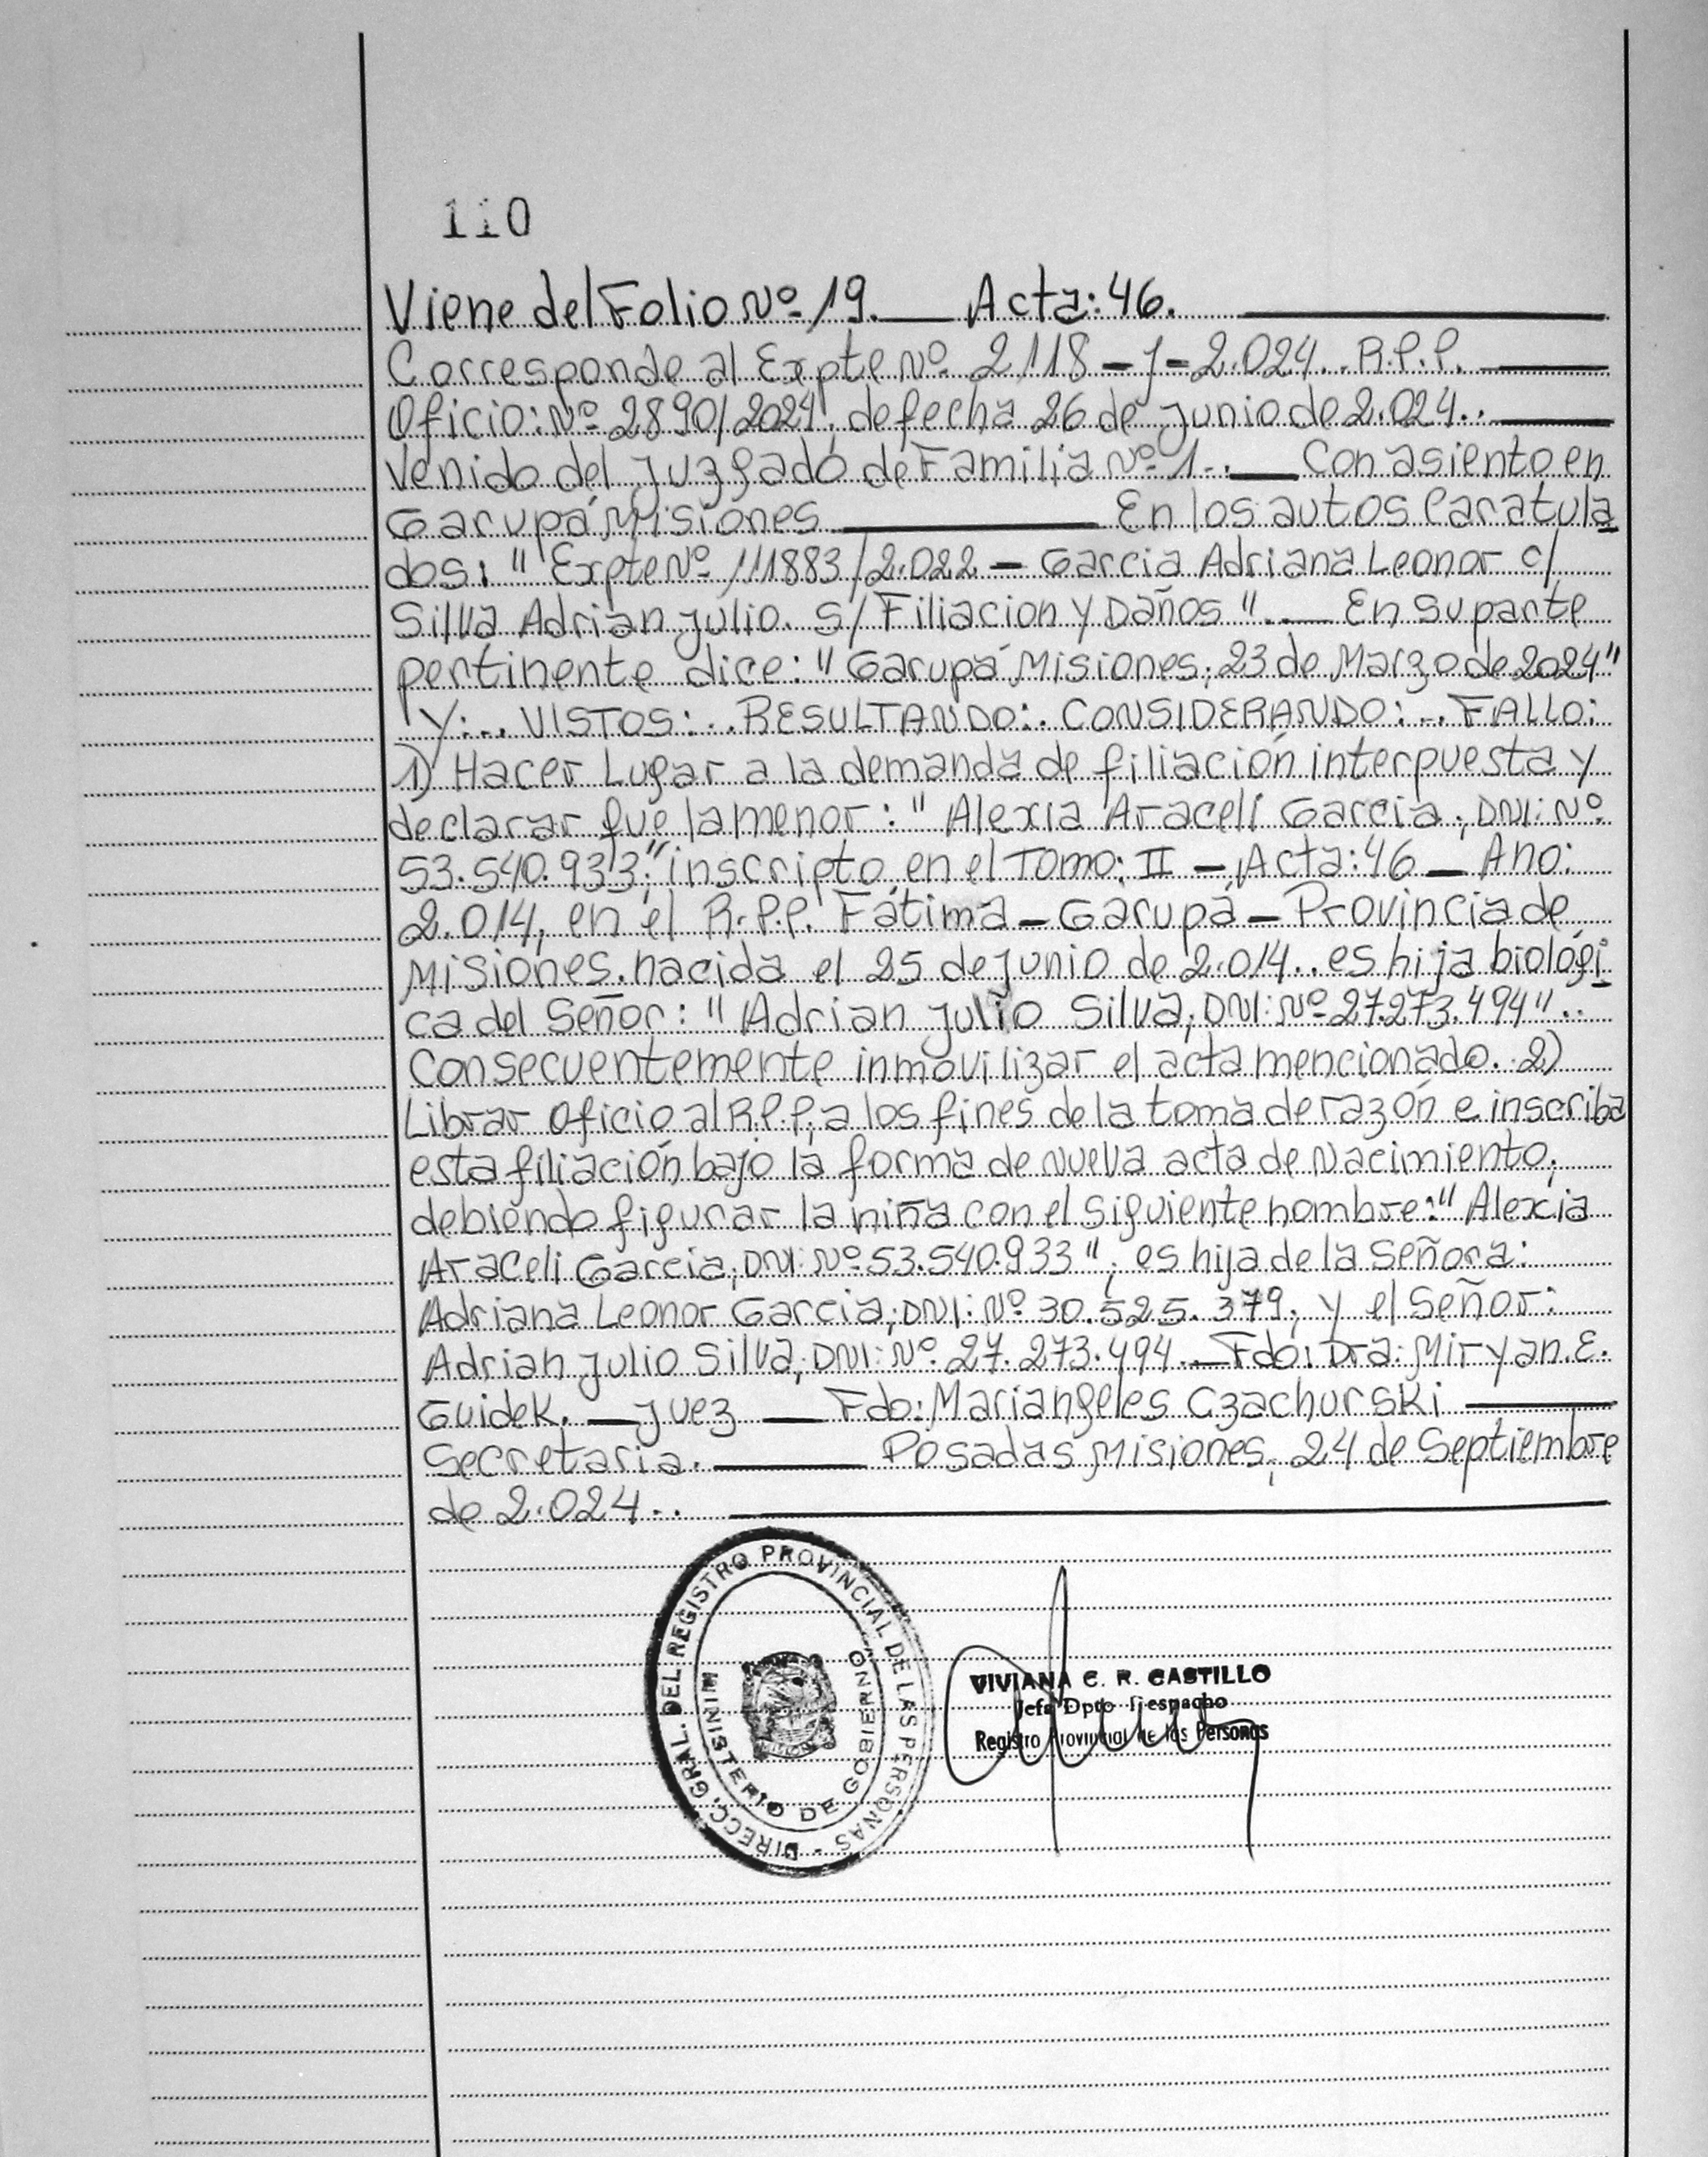 110
Viene del Folio Nº 19. Acta: 46.
Corresponde al Expte Nº 2118 - J - 2.024.. R.P.P.
Oficio: Nº 2890/2024, de fecha 26 de Junio de 2.024..
Venido del Juzgado de Familia Nº 1-. Con asiento en
Garupá Misiones En los autos Caratula
dos: " Expte Nº 111883/2.022 - Garcia Adriana Leonor c/
Silva Adrian Julio. S/ Filiacion y Daños ". En su parte
pertinente dice: " Garupá Misiones, 23 de Marzo de 2024"
Y:.. VISTOS:.. RESULTANDO:. CONSIDERANDO:.. FALLO:
1) Hacer Lugar a la demanda de filiación interpuesta y
declarar que la menor: " Alexia Araceli Garcia, DNI: Nº
53.540.933", inscripto en el Tomo: II - Acta: 46 - Año:
2.014, en el R.P.P. Fátima - Garupá - Provincia de
Misiones. nacida el 25 de Junio de 2.014.. es hija biológi
ca del Señor: " Adrian Julio Silva, DNI: Nº 27.273.494"..
Consecuentemente inmovilizar el acta mencionado. 2)
Librar Oficio al R.P.P, a los fines de la toma de razón e inscriba
esta filiación bajo la forma de nueva acta de Nacimiento,
debiendo figurar la niña con el siguiente nombre: " Alexia
Araceli Garcia, DNI: Nº 53.540.933 ", es hija de la Señora:
Adriana Leonor Garcia, DNI: Nº 30.525.379, y el Señor:
Adrian Julio Silva, DNI: Nº 27.273.494. Fdo: Dra: Miryan. E.
Guidek. Juez Fdo: Mariangeles Czachurski
Secretaria. Posadas Misiones, 24 de Septiembre
de 2.024..
DIRECC. GRAL. DEL REGISTRO PROVINCIAL DE LAS PERSONAS -
MINISTERIO DE GOBIERNO
VIVIANA C. R. CASTILLO
Jefa Dpto Despacho
Registro Provincial de las Personas